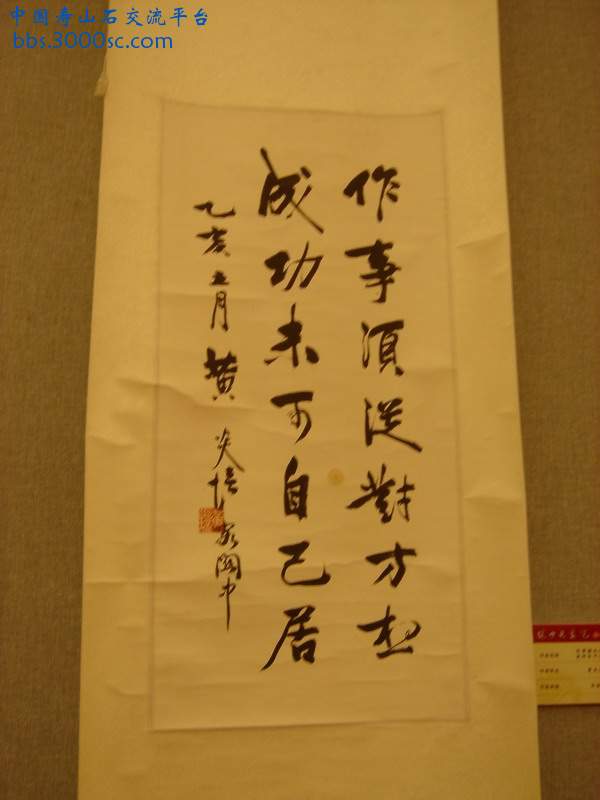 中国寿山石交流平台
bbs.3000sc.com
作事須從對方想
成功未可自己居
乙亥五月 黄炎培